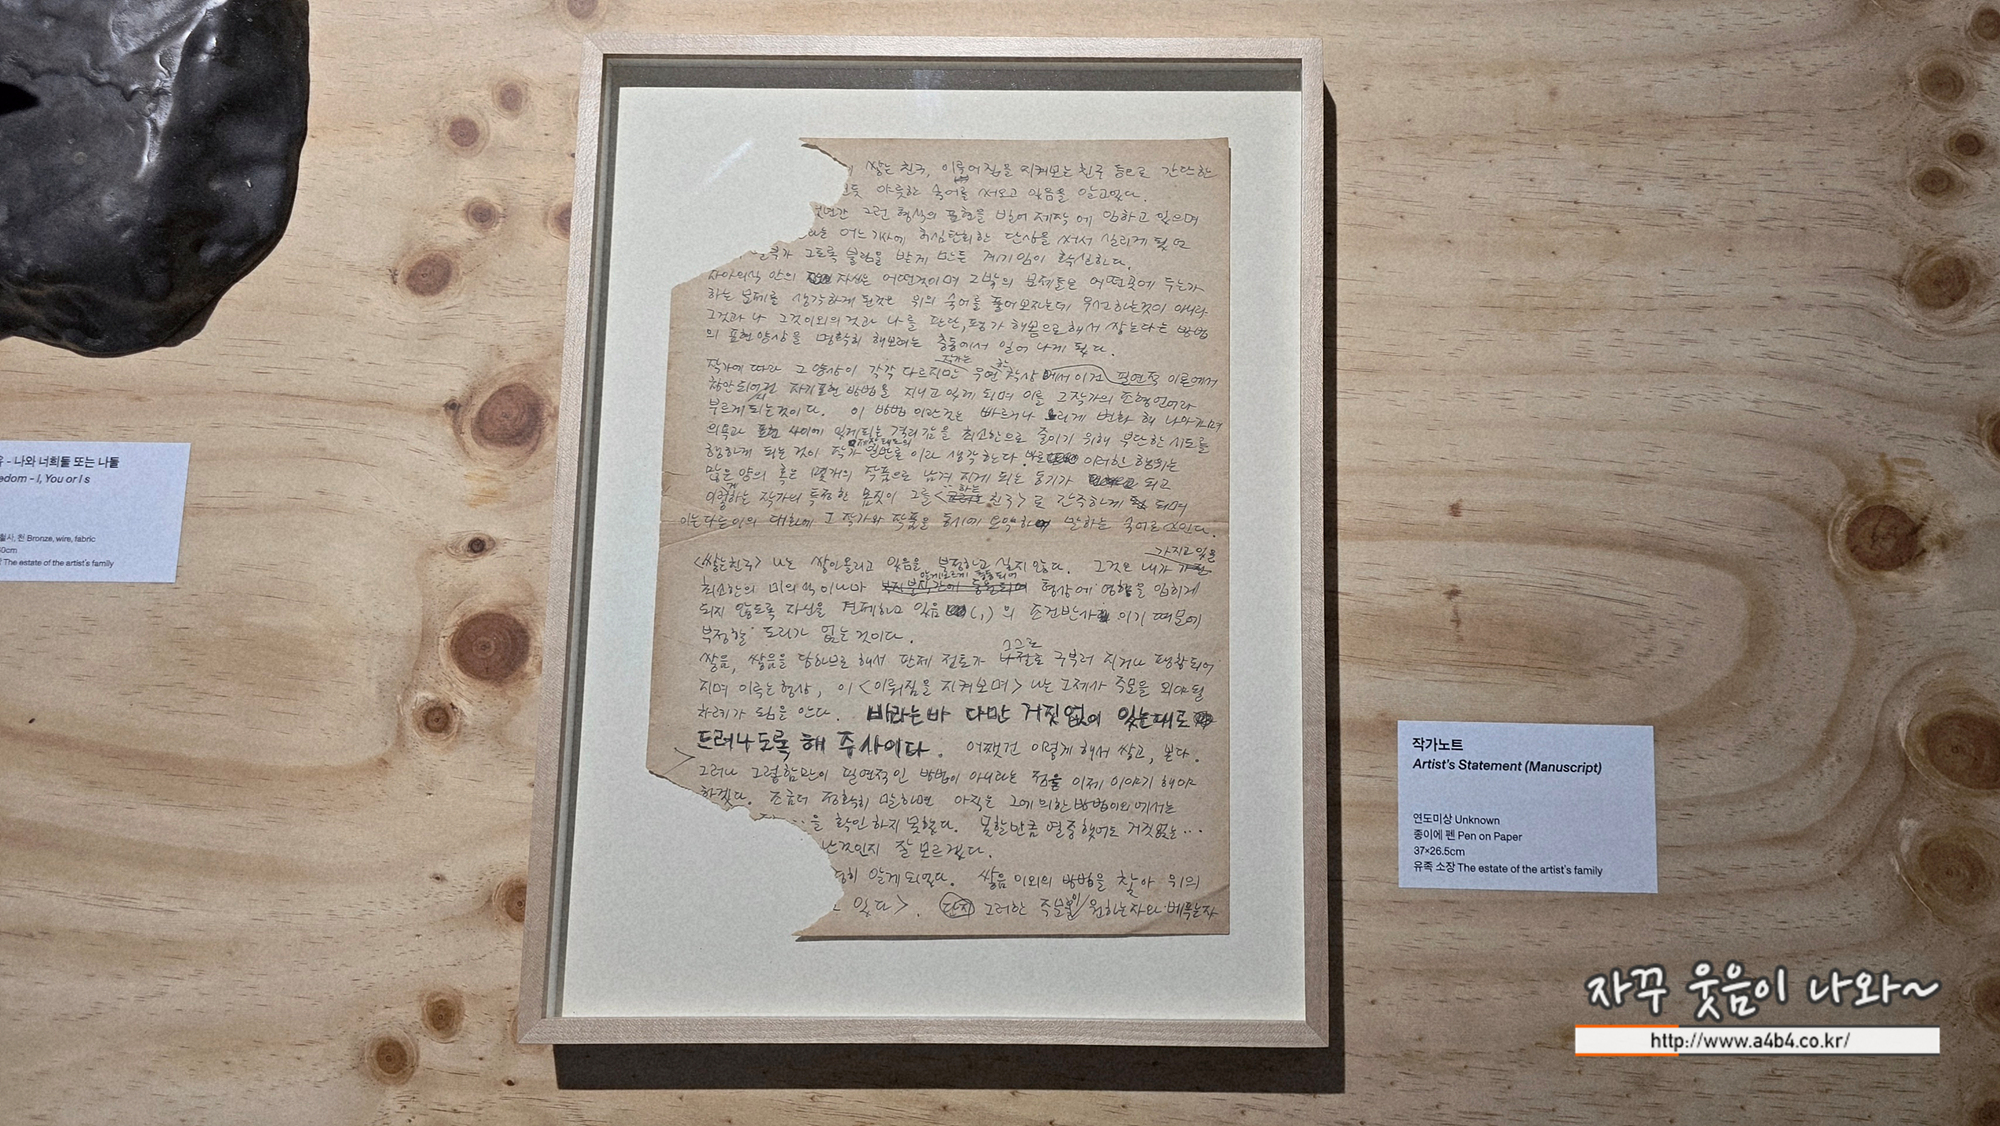 쌓는 친구, 이루어짐을 지켜보는 친구 등으로 간단한
야릇한 숙어를 써오고 있음을 알고있다.
그런 형식의 표현을 빌어 제작에 임하고 있으며
어느 기사에 허심탄회한 단상을 써서 실리게 됐던
그토록 불림을 받게 만든 계기임이 확실하다.
자아의식 안의 자신은 어떤것이며 그밖의 문제들은 어떤곳에 두는가
하는 문제를 생각하게 된것은 위의 숙어를 풀어보자는데 우선하는것이 아니라
그것과 나 그것이외의 것과 나를 판단, 평가 해봄으로 해서 쌓는다는 방법
의 표현양상을 명확히 해보려는 충동에서 일어 나게 됐다.
작가는
작가에 따라 그 양상이 각각 다르지만 우연한 착상에서 이건 필연적 이론에서
창안되어진 자기표현 방법을 지니고 있게 되며 이를 그 작가의 조형언어라
부르게 되는것이다. 이 방법 이란것은 빠르거나 느리게 변화 해 나아가며
의욕과 표현 사이에 있게되는 격리감을 최소한으로 줄이기 위해 부단한 시도를
행하게 되는 것이 작가 이라 생각한다. 이러한 행위는
많은 양의 혹은 몇개의 작품으로 남겨 지게 되는 동기가 되고
이렇게하는 작가의 특정한 몸짓이 그를 <하는 친구>로 간주하게 되며
이는 다른이의 대화에 그 작가와 작품을 동시에 요약하여 말하는 숙어로 쓰인다.
가지고 있을
<쌓는친구> 나는 쌓아올리고 있음을 부정하고 싶지 않다. 그것은 내가
최소한의 미의식 이나마 형상에 영향을 입히게
되지 않도록 자신을 견제하고 있음 (,)의 조건반사 이기 때문에
부정할 도리가 없는 것이다.
그그로
쌓음, 쌓음을 당하므로 해서 판제 점토가 구부러 지거나 팽창되어
지며 이루는 형상, 이 <이뤄짐을 지켜보며> 나는 그제사 주문을 외야 될
차례가 됨을 안다. 바라는바 다만 거짓없이 있는대로
드러나도록 해 주사이다. 어쨌건 이렇게 해서 쌓고, 본다.
그러나 그렇함만이 필연적인 방법이 아니라는 점을 이제 이야기 해야
하겠다. 조금더 정확히 말하면 아직은 그에 의한 방법이외에서는
을 확인 하지 못했다. 못할만큼 열중했어도 거짓없는…
난것인지 잘 모르겠다.
알게 되었다. 쌓음 이외의 방법을 찾아 위의
있다>. 단지 그러한 주문을 원하는자와 베푸는자
나와 너희들 또는 나들
edom – I, You or I s
철사, 천 Bronze, wire, fabric
0cm
The estate of the artist's family
작가노트
Artist's Statement (Manuscript)
연도미상 Unknown
종이에 펜 Pen on Paper
37×26.5cm
유족 소장 The estate of the artist's family
자꾸 웃음이 나와~
http://www.a4b4.co.kr/